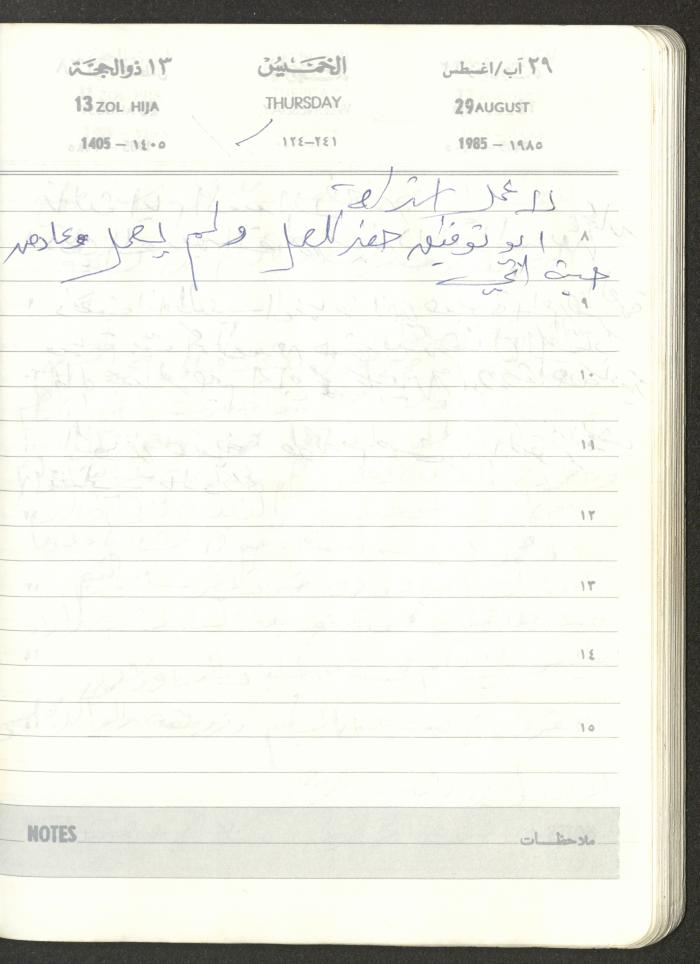 ٢٩ آب/اغسطس الخميس ١٣ ذو الحجة
29 AUGUST THURSDAY 13 ZOL HIJA
1985 – ١٩٨٥ ٢٤١–١٢٤ 1405 – ١٤٠٥
لا عمل استراحة
٨ ابو توفيق حضر للعمل ولم يعمل وعاد من
حيث أتى
٩
١٠
١١
١٢
١٣
١٤
١٥
NOTES ملاحظات